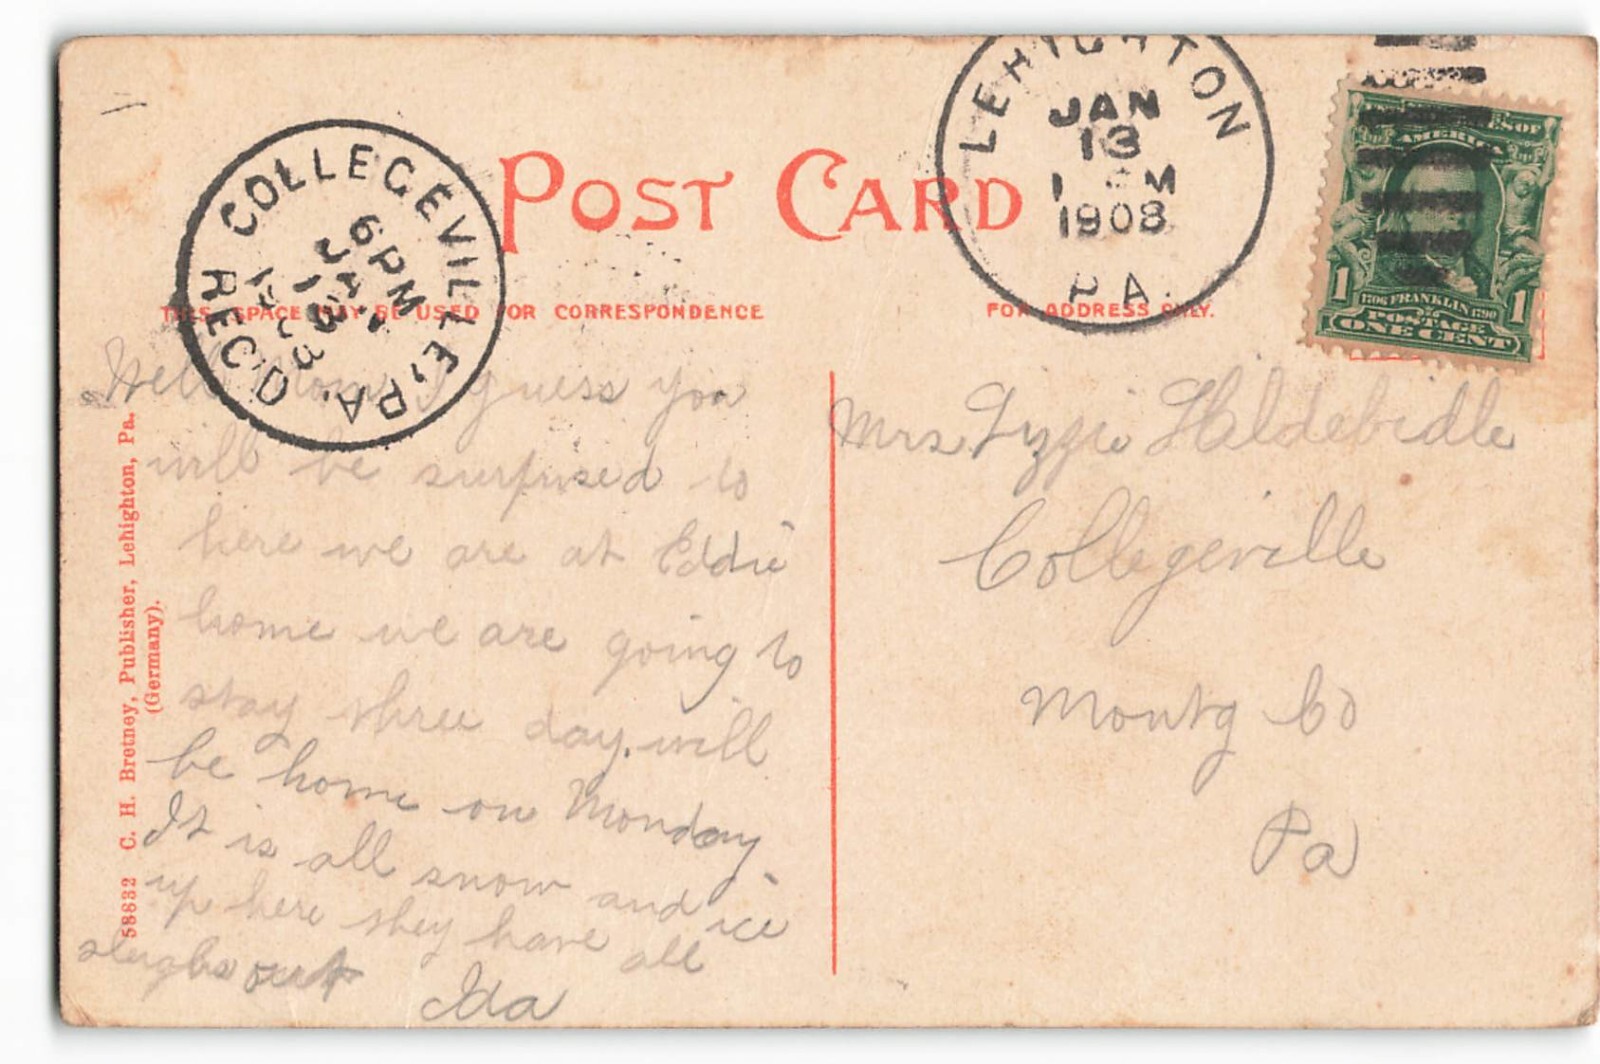 POST CARD
THIS SPACE MAY BE USED FOR CORRESPONDENCE
FOR ADDRESS ONLY.
COLLEGEVILLE, PA.
6 PM
JAN
13
REC'D
LEHIGHTON
JAN
13
1 M
1908
PA.
AMERICA
1 1
1706 FRANKLIN 1790
POSTAGE
ONE CENT
58832 C. H. Bretney, Publisher, Lehighton, Pa.
(Germany).
Hello Mom I guess you
will be surprised to
here we are at Eddie
home we are going to
stay three day. will
be home on Monday
It is all snow and ice
up here they have all
sleighs out
Ida
Mrs Lizzie Hildebidle
Collegeville
Montg Co
Pa